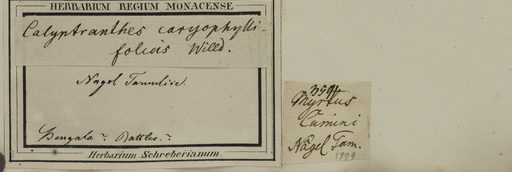 HERBARIUM REGIUM MONACENSE
Calyptranthes caryophylli-
folius Willd.
Nagel Tamulice.
Bengala Rottler.
Herbarium Schreberianum
Myrtus
Cumini
Nagel Tam.